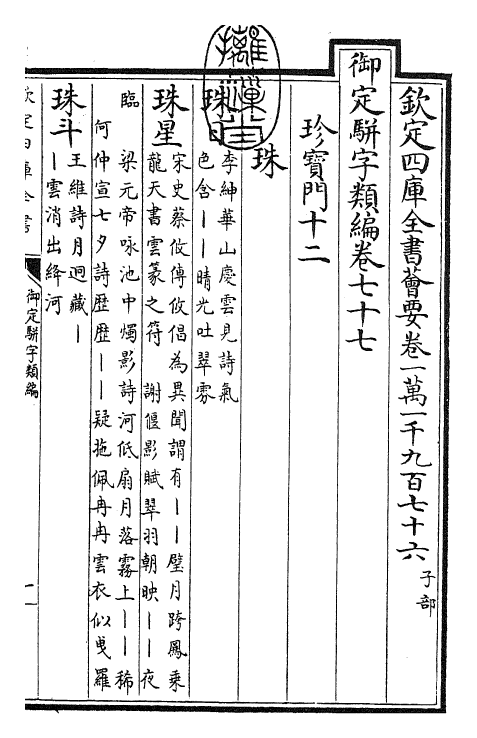 欽定四庫全書薈要卷一萬一千九百七十六 子部
御定駢字類編卷七十七
珍寶門十二
珠
珠日 李紳華山慶雲見詩氣
色含丨丨晴光吐翠雰
珠星 宋史蔡攸傳攸倡為異聞謂有丨丨璧月跨鳳乗
龍天書雲篆之符 謝偃影賦翠羽朝映丨丨夜
臨 梁元帝咏池中燭影詩河低扇月落霧上丨丨稀
何仲宣七夕詩歴歴丨丨疑拖佩冉冉雲衣似曵羅
珠斗 王維詩月迥藏丨
丨雲消出絳河
欽定四庫全書
御定駢字類編
一